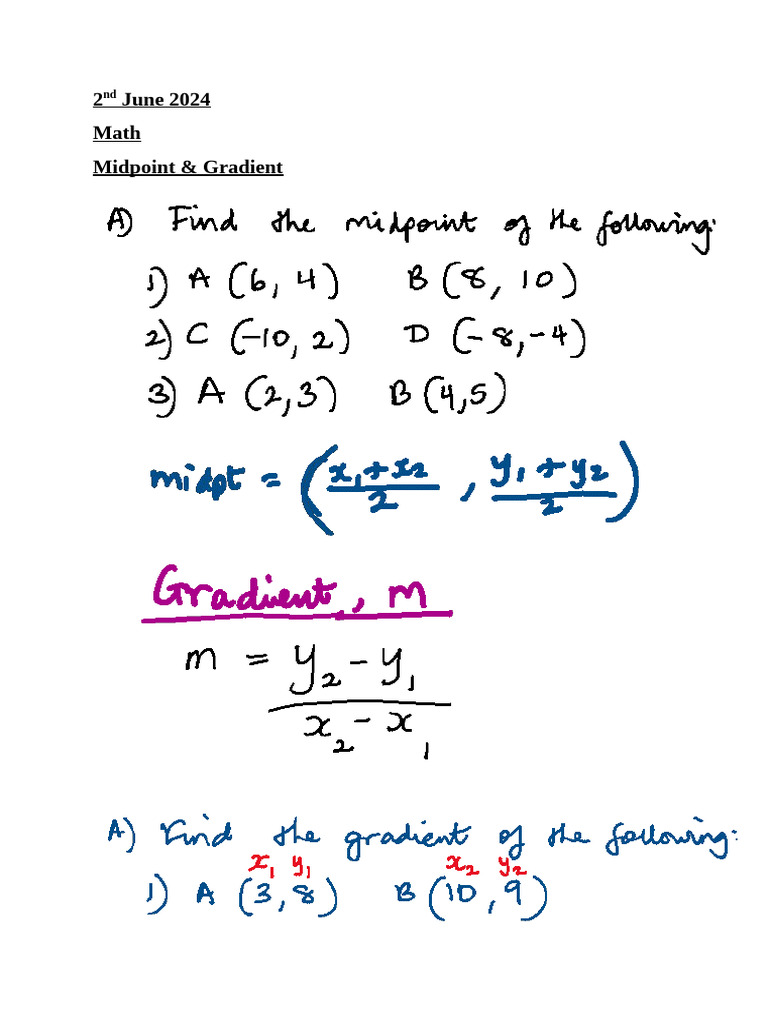 2nd June 2024
Math
Midpoint & Gradient
A) Find the midpoint of the following:
1) A (6, 4) B (8, 10)
2) C (-10, 2) D (-8, -4)
3) A (2,3) B (4,5)
midpt = (x₁+x₂/2 , y₁+y₂/2)
Gradient, m
m = y₂ - y₁
x₂ - x₁
A) Find the gradient of the following:
x₁ y₁ x₂ y₂
1) A (3, 8) B (10, 9)